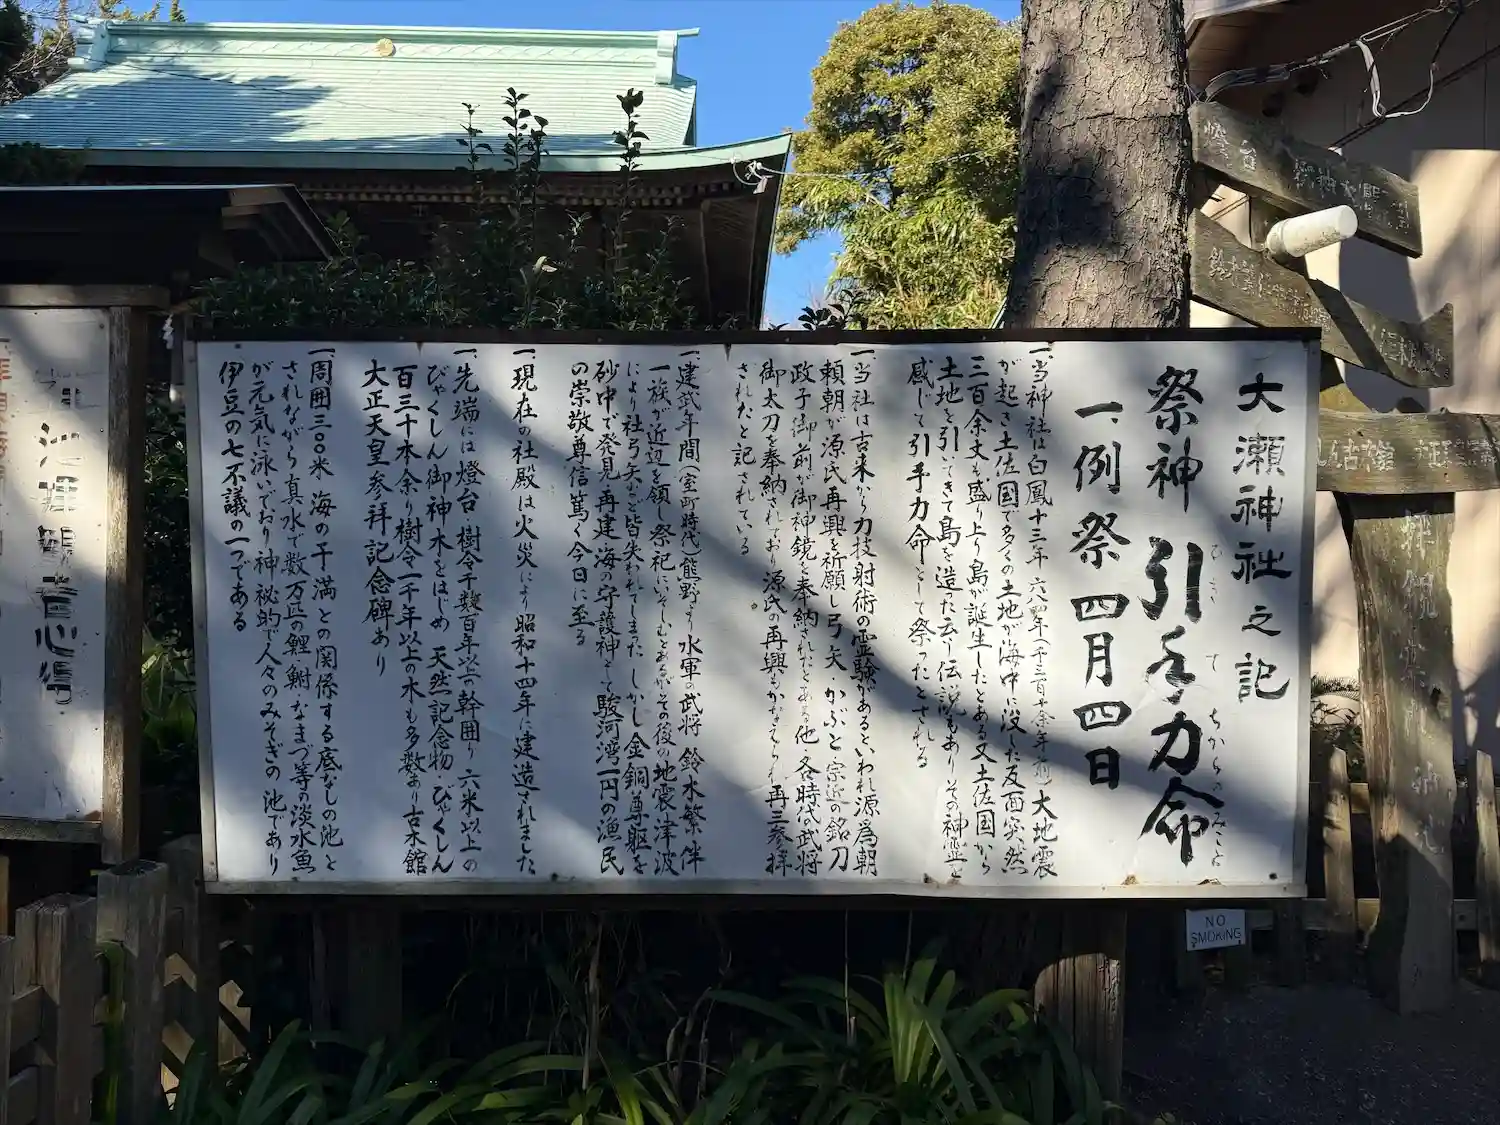 大瀬神社之記
祭神 引手力命
ひき て ちからのみこと
一、例祭 四月四日
一、当神社は白鳳十三年 六八四年(千三百十余年前)大地震
が起き土佐国で多くの土地が海中に没した反面突然
三百余丈も盛り上り島が誕生したとある又土佐国から
土地を引いてきて島を造った云う伝説もありその神霊を
感じて引手力命として祭ったとされる
一、当社は古来から力技射術の霊験があるといわれ源為朝
頼朝が源氏再興を祈願し弓・矢・かぶと・宗近の銘刀
政子御前が御神鏡を奉納されたとある他・各時代の武将
御太刀を奉納されており源氏の再興もかなえられ再三参拝
されたと記されている
一、建武年間(室町時代)熊野より 水軍の武将 鈴木繁伴
一族が近辺を領し祭祀にいそしむとあるがその後の地震津波
により社弓矢など皆失われてしまった しかし金銅尊躯を
砂中で発見再建海の守護神として駿河湾一円の漁民
の崇敬尊信篤く今日に至る
一、現在の社殿は火災により昭和十四年に建造されました
一、先端には燈台・樹令千数百年以上の幹囲り 六米以上の
びゃくしん御神木をはじめ 天然記念物・びゃくしん
百三十本余り樹令一千年以上の木も多数あり古木館
大正天皇参拝記念碑あり
一、周囲三〇〇米 海の干満との関係する底なしの池と
されながら真水で数万匹の鯉・鮒・なまづ等の淡水魚
が元気に泳いでおり神秘的で人々のみそぎの池であり
伊豆の七不議の一つである
NO
SMOKING